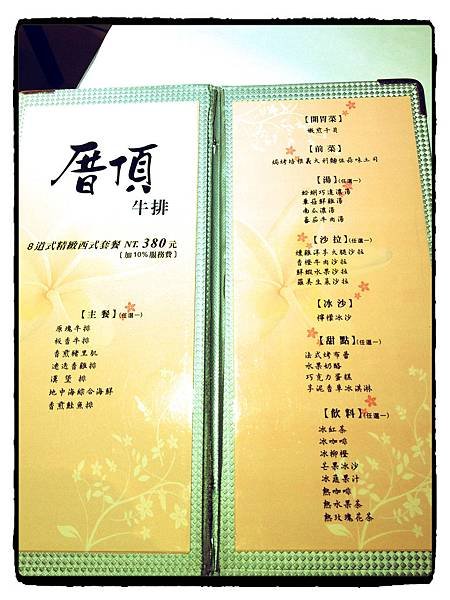 厝頂
牛排
8道式精緻西式套餐 NT. 380元
〔加10%服務費〕
【主餐】(任選一)
原塊牛排
板香牛排
香煎豬里肌
漢堡排
地中海綜合海鮮
香煎鮭魚排
【開胃菜】
嫩煎干貝
【前菜】
焗烤培根義大利麵佐蒜味土司
【湯】(任選一)
蛤蜊巧達濃湯
草菇鮮雞湯
南瓜濃湯
蕃茄牛肉湯
【沙拉】(任選一)
燻雞洋芋火腿沙拉
香橙牛肉沙拉
鮮蝦水果沙拉
蘿美生菜沙拉
【冰沙】
檸檬冰沙
【甜點】(任選一)
法式烤布蕾
水果奶酪
巧克力蛋糕
芋泥香草冰淇淋
【飲料】(任選一)
冰紅茶
冰咖啡
冰柳橙
芒果冰沙
冰蔬果汁
熱咖啡
熱水果茶
熱玫瑰花茶